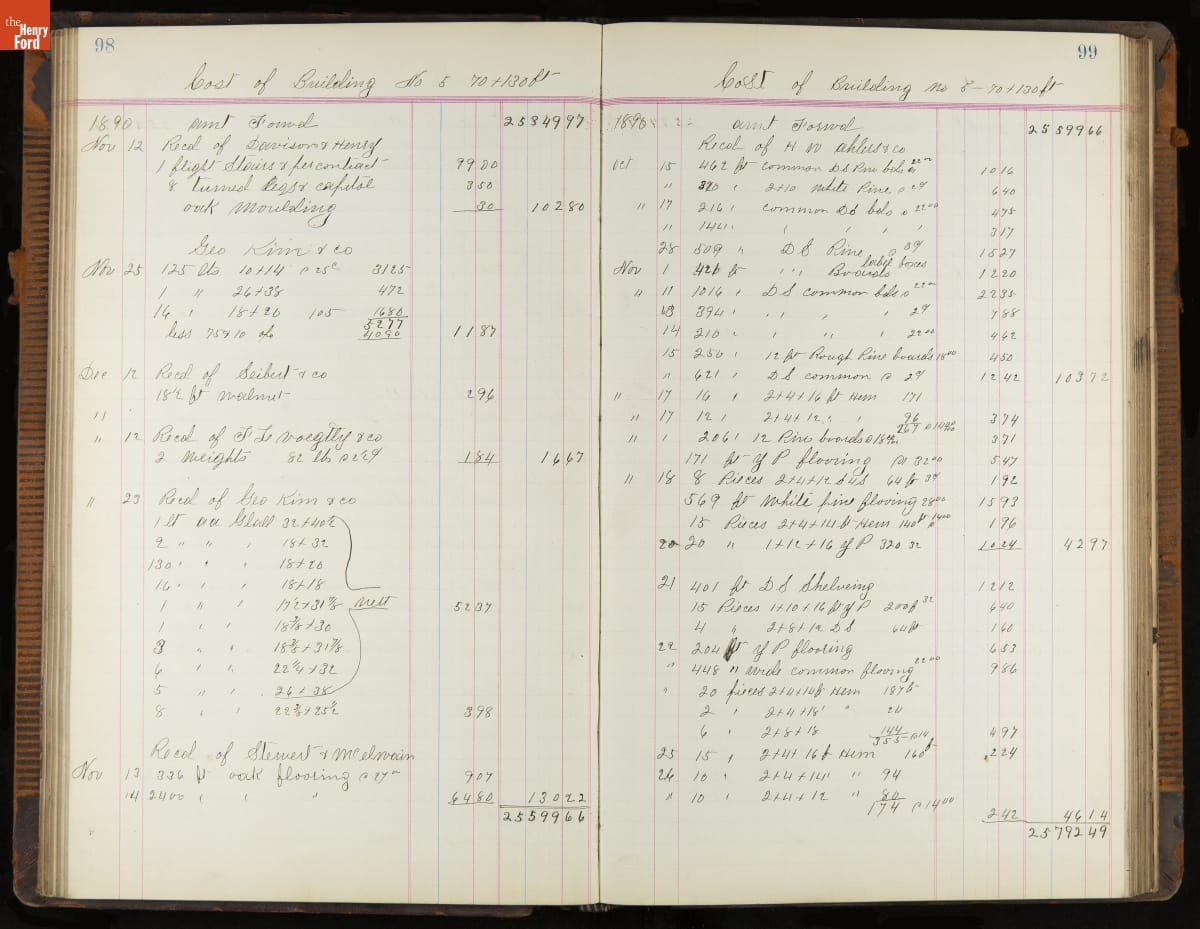 the Henry Ford
98
Cost of Building No 5 70+130 ft
1890 amt Forwd 2534997
Nov 12 Recd of Davison & Henry
1 flight Stairs & per contract 9900
8 turned Legs & capitol 350
oak Moulding 30 10280
Geo Kim & co
Nov 25 125 lts 10+14 @ 25c 3125
1 " 26+38 472
16 " 18+20 105 1680
5277
less 75&10 4090 1187
Dec 12 Recd of Seibert & co
18½ ft walnut 296
" 12 Recd of F Le Voegtly & co
2 weights 82 lbs @ 2¼ 184 1667
" 23 Recd of Geo Kim & co
1 lt Glass 32+40½
2 " " " 18+32
130 " " " 18+20
16 " " 18+18
1 " " 17½+31⅞ nett 5237
1 " " 18⅞+30
3 " " 18⅞+31⅞
6 " " 22¼+32
5 " " 26+38
8 " " 22⅜+25½ 398
Recd of Stewert & McElwain
Nov 13 336 ft oak flooring @ 27 00 907
14 2400 " " " 6480 13022
2559966
99
Cost of Building no 5 - 70+130 ft
1890 amt Forwd 2559966
Recd of H W Ahlers & co
Oct 15 462 ft common D S Pine bds @ 22 00 1016
" 320 " 2+10 White Pine @ 2¢ 640
" 17 216 " common D S bds @ 22 00 475
" 144 " " " " " 317
28 509 " D S Pine @ 3¢ 1527
Nov 1 420 ft " " Boards boxes 1220
" 11 1016 " D S common bds @ 22 00 2235
13 394 " " " " 2¢ 788
14 210 " " " " 22 00 462
15 250 " 12 ft Rough Pine boards 18 00 450
" 621 " D S common @ 2¢ 1242 10372
" 17 16 " 2+4+16 ft Hem 171
" 17 12 " 2+4+12 " " 96
267 @ 14 00 374
" " 206 " 12 Pine boards @ 18 00 371
171 ft y P flooring @ 32 00 547
" 18 8 Pieces 2+4+12 S4S 64 ft 3¢ 192
569 ft White pine flooring 28 00 1593
15 Pieces 2+4+14 ft Hem 140 ft @ 14 00 196
20 20 " 1+12+16 y P 320 32 1024 4297
21 401 ft D S Shelveing 1212
15 Pieces 1+10+16 ft y P 200 ft 32 640
4 " 2+8+12 D S 64 ft 160
22 204 ft y P flooring 653
" 448 " wide common flooring 22 00 986
" 20 pieces 2+4+14 ft Hem 187 ft
2 " 2+4+18 " 24
6 " 2+8+18 144
355 @ 14 497
25 15 " 2+4+16 ft Hem 160 ft 224
26 10 " 2+4+14 " " 94
" 10 " 2+4+12 " 80
174 @ 14 00 242 4614
2579249